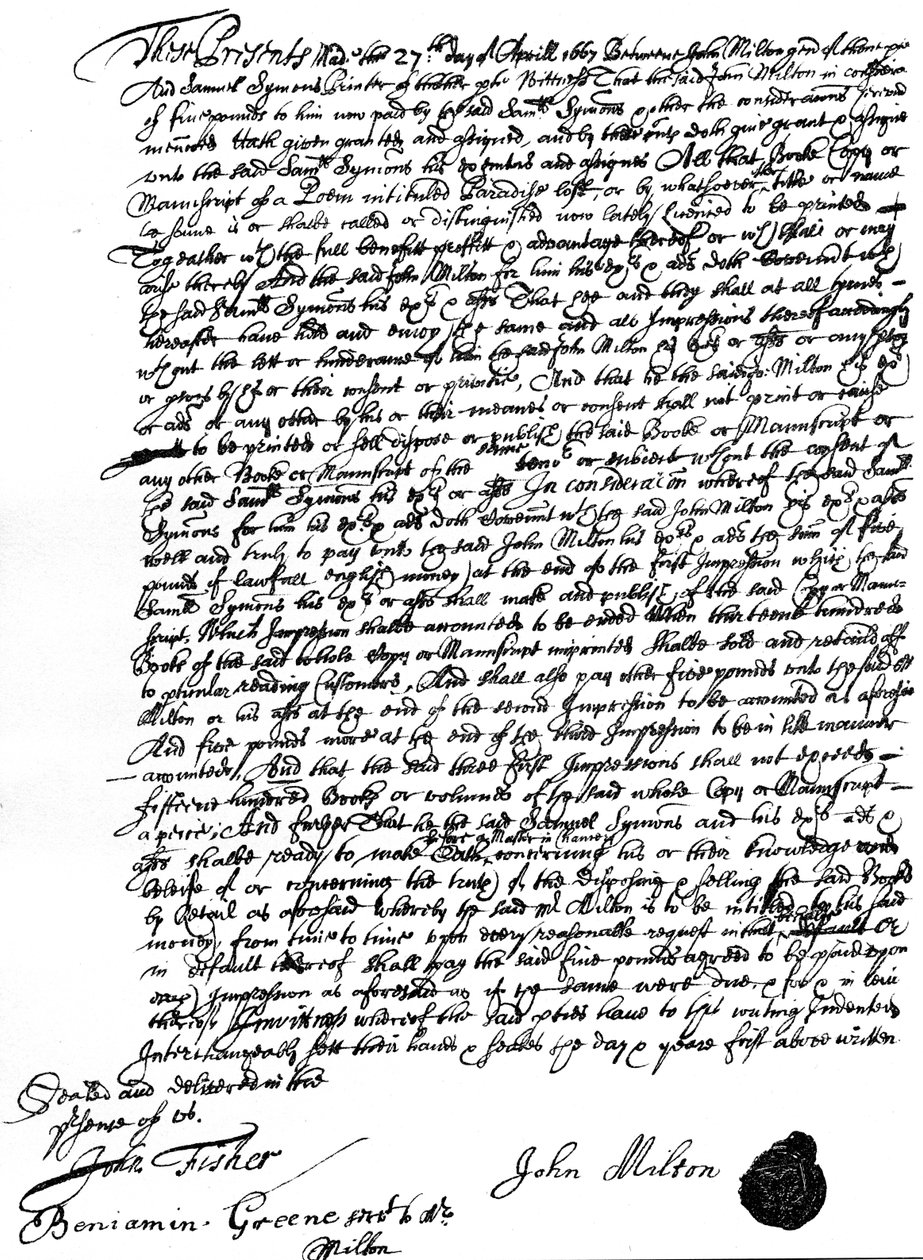 These Presents Made the 27th day of Aprill 1667 Betweene John Milton gent of thone pte
And Samuel Symons Printer of thother pte Wittness That the said John Milton in consideracon
of five pounds to him now paid by the said Samll Symons & other the consideracons herein
menconed Hath given granted and assigned, and by these pnts doth give grant & assigne
unto the said Samll Symons his executors and assignes All that Booke Copy or
Manuscript of a Poem intituled Paradise lost, or by whatsoever other title or name
the same is or shalbe called or distinguished now lately Licensed to be printed
Together wth the full benefitt proffitt & advantage thereof or wch shall or may
arise thereby And the said John Milton for him his exrs & ads doth Covennt wth
the said Samll Symons his exrs & assns That hee and they shall at all tymes
hereafter have hold and enjoy the same and all Impressions thereof accordingly
wthout the lett or hinderance of him the said John Milton his exrs or assns or any pson
or psons by his or their consent or privitie, And that he the said Jo: Milton his exrs
or ads or any other by his or their meanes or consent shall not print or cause
to be printed or sell dispose or publish the said Booke or Manuscript or
any other Booke or Manuscript of the same tenor or subject wthout the consent of
the said Samll Symons his exrs or assns In consideracon whereof the said Samll
Symons for him his exrs & ads doth Covennt wth the said John Milton his exrs & assns
well and truly to pay unto the said John Milton his exrs & ads the sum of five
pounds of lawfull english money at the end of the first Impression which the said
Samll Symons his exrs or assns shall make and publish of the said Copy or Manu-
script, Which Impression shalbe accounted to be ended when thirteene hundred
Books of the said whole Copy or Manuscript imprinted shalbe sold and retaild off
to pticular reading Customers, And shall also pay other five pounds unto the said Mr
Milton or his assns at the end of the second Impression to be accounted as aforesaid
And five pounds more at the end of the third Impression to be in like manner
accounted, And that the said three first Impressions shall not exceed
fifteene hundred Books or volumes of the said whole Copy or Manuscript
a peice, And further That he the said Samuel Symons and his exrs ads &
assns shalbe ready to make Oath before a Master in Chancery concerning his or their knowledge and
beleife of or concerning the truth of the disposing & selling the said Books
by Retail as aforesaid whereby the said Mr Milton is to be intitled to his said
money from time to time upon every reasonable request in that behalfe or
in default thereof shall pay the said five pounds agreed to be paid upon
each Impression as aforesaid as if the same were due, & for & in lieu
thereof In wittness whereof the said pties have to this writing Indented
Interchangeably sett their hands & seales the day & yeare first above written
Sealed and delivered in the
psence of us.
John Fisher
John Milton
Beniamin Greene servt to Mr
Milton